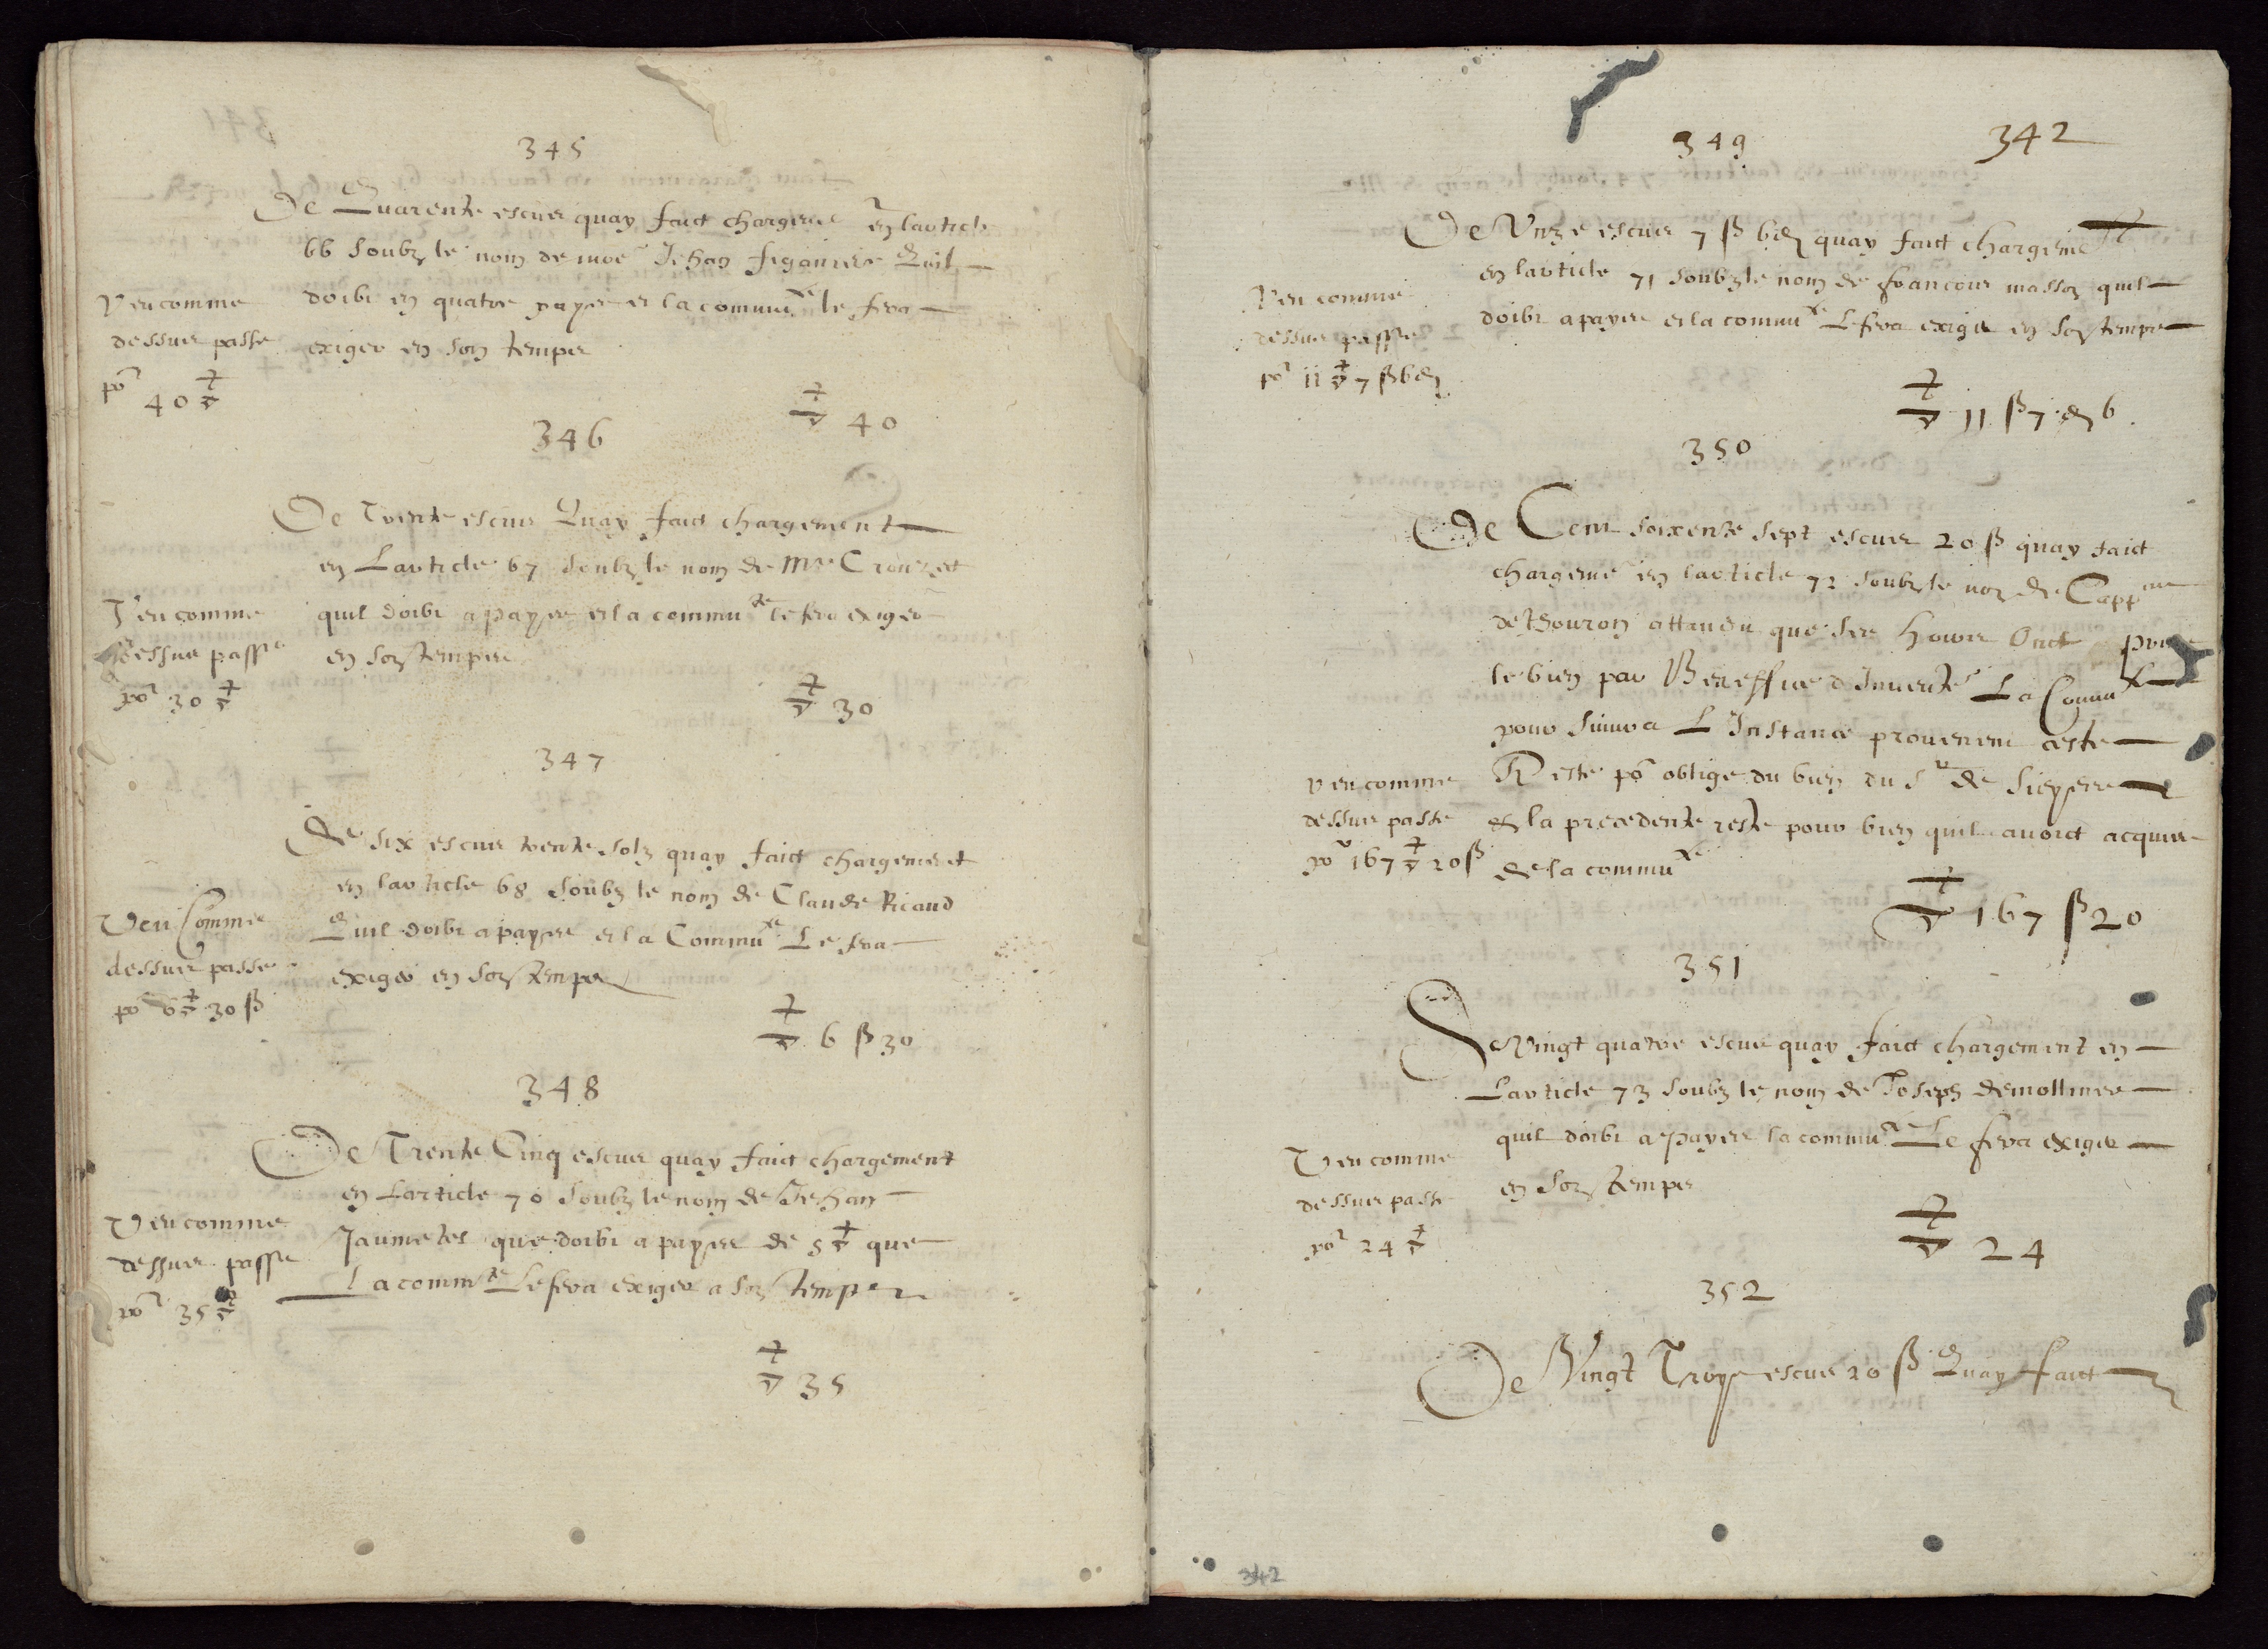 345
De Quarente escus quay faict chargeme en larticle
66 soubz le nom de moe Jehan figaniere Quil
doibt en quatre payes et la commute le fera
exiger en son temps
Veu comme
dessus passe
por 40 ▽
▽ 40
346
De Trente escus Quay faict chargement
en Larticle 67 soubz le nom de Mre Crouzet
quil doibt a payes et la commute le fera exiger
en son temps
Veu comme
dessus passe
por 30 ▽
▽ 30
347
De six escus trente solz quay faict chargement
en larticle 68 soubz le nom de Claude Ricaud
Quil doibt a payes et la Commute Le fera
exiger en son temps
Veu Comme
dessus passe
por 6 ▽ 30 ß
▽ 6 ß 30
348
De Trente Cinq escus quay faict chargement
en Larticle 70 soubz le nom de Jehan
Jaumetes que doibt a payes de 5 ▽ que
La commte Le fera exiger a son temps
Veu comme
dessus passe
por 35 ▽
▽ 35
349 342
De Unze escus 7 ß 6 d quay faict chargeme
en larticle 71 soubz le nom de francois masson quil
doibt a payes et la commute Le fera exiger en son temps
Veu comme
dessus passe
por 11 ▽ 7 ß 6 d
▽ 11 ß 7 d 6
350
De Cent soixente sept escus 20 ß quay faict
chargeme en larticle 72 soubz le nom de Cappne
de thouron attandu que ses hoirs Ont prins
le bien par Beneffice dInvente La Commute
poursuivra LInstance provenent ceste
Reste por oblige du bien du Sr de Sieyes
et la precedente reste pour bien quil avoict acquis
de la commute
Veu comme
dessus passe
por 167 ▽ 20 ß
▽ 167 ß 20
351
De Vingt quatre escus quay faict chargement en
Larticle 73 soubz le nom de Joseph demollines
quil doibt a payes la commute Le fera exiger
en son temps
Veu comme
dessus passe
por 24 ▽
▽ 24
352
De Vingt Troys escus 20 ß Quay faict
342